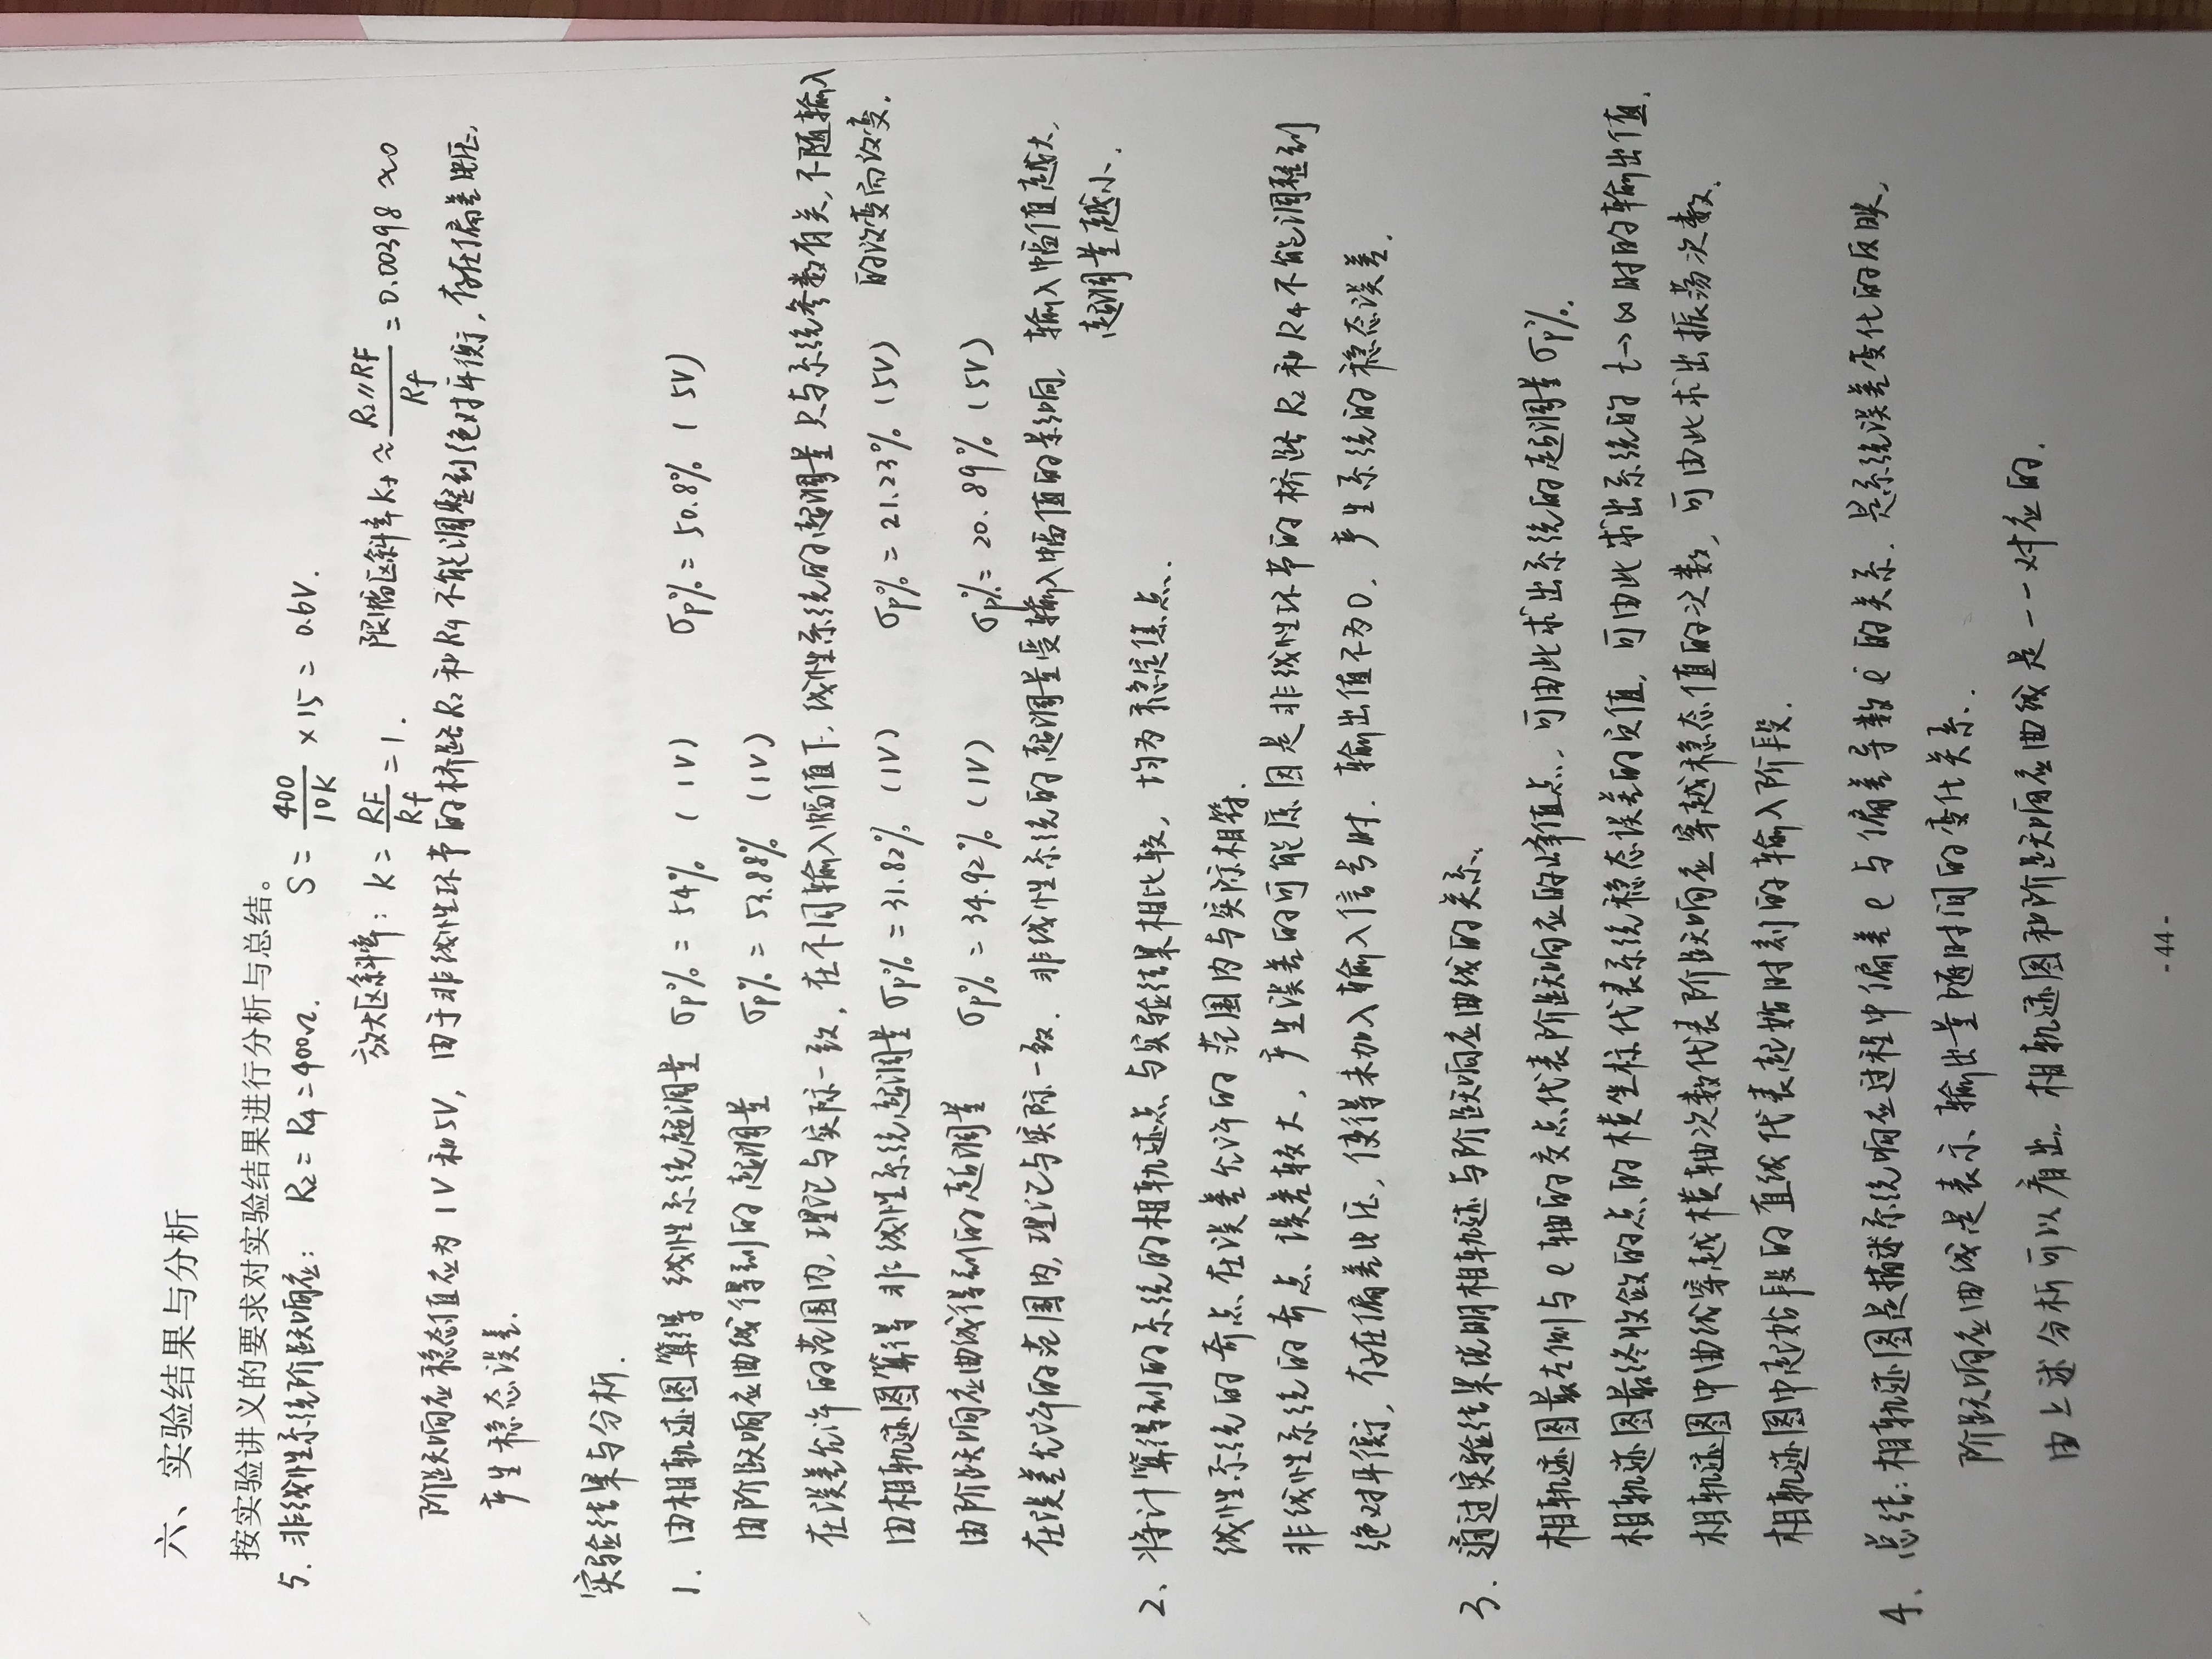 六、实验结果与分析
按实验讲义的要求对实验结果进行分析与总结。
5. 非线性系统阶跃响应: R₂ = R₄ = 400Ω. S = 400/10K × 15 = 0.6V.
放大区斜率: K = RF/Rf = 1. 限幅区斜率 Kf ≈ R₂//RF/Rf = 0.00398 ≈0
阶跃响应稳态值应为 1V 和5V, 由于非线性环节的桥路R₂和R₄不能调整到绝对平衡, 存在偏差电压,
产生稳态误差.
实验结果与分析.
1. 由相轨迹图算得 线性系统超调量 σp% = 54% (1V) σp% = 50.8% (5V)
由阶跃响应曲线得到的超调量 σp% = 53.88% (1V)
在误差允许的范围内, 理论与实际一致. 在不同输入幅值下, 线性系统的超调量只与系统参数有关, 不随输入
的改变而改变.
由相轨迹图算得 非线性系统超调量 σp% = 31.82% (1V) σp% = 21.23% (5V)
由阶跃响应曲线得到的超调量 σp% = 34.92% (1V) σp% = 20.89% (5V)
在误差允许的范围内, 理论与实际一致. 非线性系统的超调量受输入幅值的影响, 输入幅值越大,
超调量越小.
2、将计算得到的系统的相轨迹点与实验结果相比较, 均为稳定焦点.
线性系统的奇点在误差允许的范围内与实际相符.
非线性系统的奇点误差较大, 产生误差的可能原因是非线性环节的桥路R₂和R₄不能调整到
绝对平衡, 存在偏差电压, 使得未加入输入信号时. 输出值不为0. 产生系统的稳态误差.
3. 通过实验结果说明相轨迹与阶跃响应曲线的关系.
相轨迹图最左侧与e轴的交点代表阶跃响应的峰值点, 可由此求出系统的超调量σp%.
相轨迹图最终收敛的点的横坐标代表系统稳态误差的负值, 可由此求出系统的 t→∞时的输出值.
相轨迹图中曲线穿越横轴次数代表阶跃响应穿越稳态值的次数, 可由此求出振荡次数.
相轨迹图中起始段的直线代表起始时刻的输入阶段.
4、总结: 相轨迹图是描述系统响应过程中偏差e与偏差导数ė的关系. 是系统误差变化的反映,
阶跃响应曲线是表示输出量随时间的变化关系.
由上述分析可以看出. 相轨迹图和阶跃响应曲线是一一对应的.
- 44 -